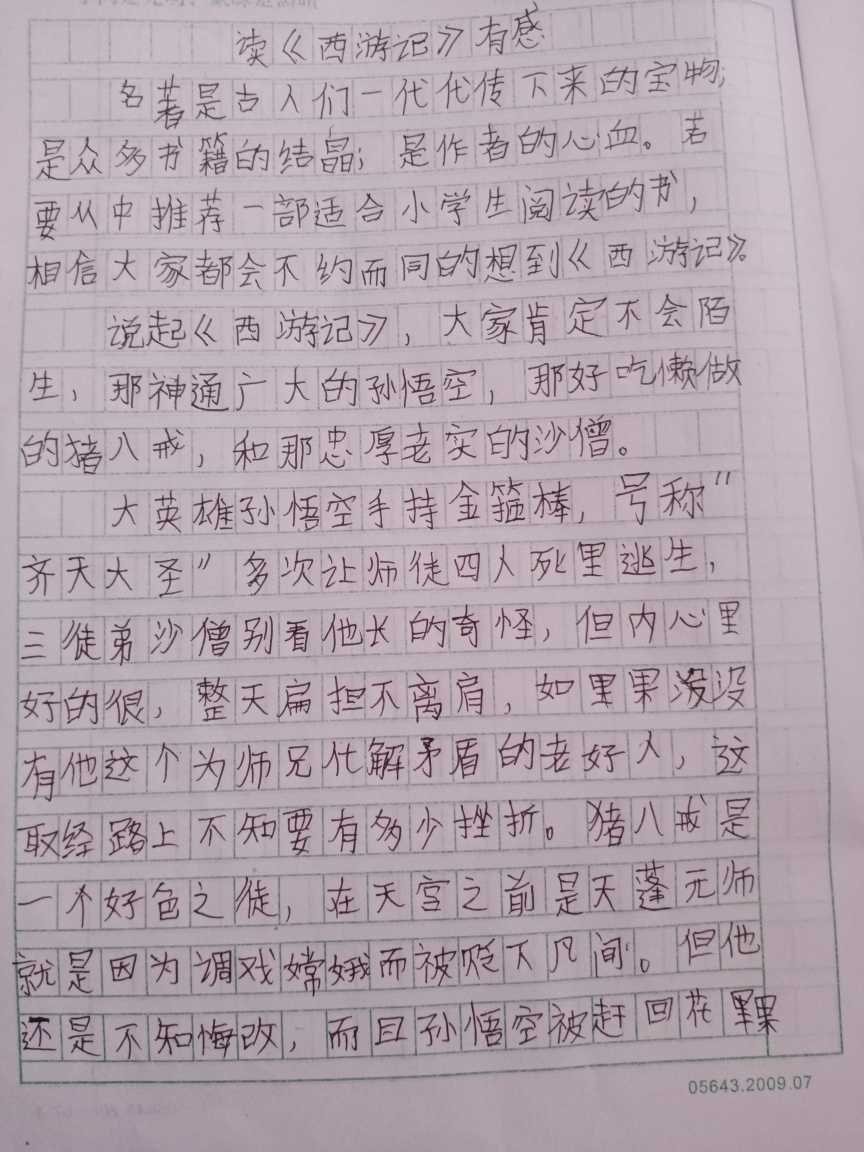 读《西游记》有感
名著是古人们一代代传下来的宝物;
是众多书籍的结晶;是作者的心血。若
要从中推荐一部适合小学生阅读的书,
相信大家都会不约而同的想到《西游记》。
说起《西游记》,大家肯定不会陌
生,那神通广大的孙悟空,那好吃懒做
的猪八戒,和那忠厚老实的沙僧。
大英雄孙悟空手持金箍棒,号称"
齐天大圣"多次让师徒四人死里逃生,
三徒弟沙僧别看他长的奇怪,但内心里
好的很,整天扁担不离肩,如里果没没
有他这个为师兄代解矛盾的老好人,这
取经路上不知要有多少挫折。猪八戒是
一个好色之徒,在天宫之前是天蓬元师
就是因为调戏嫦娥而被贬下凡间。但他
还是不知悔改,而且孙悟空被赶回花果
05643.2009.07